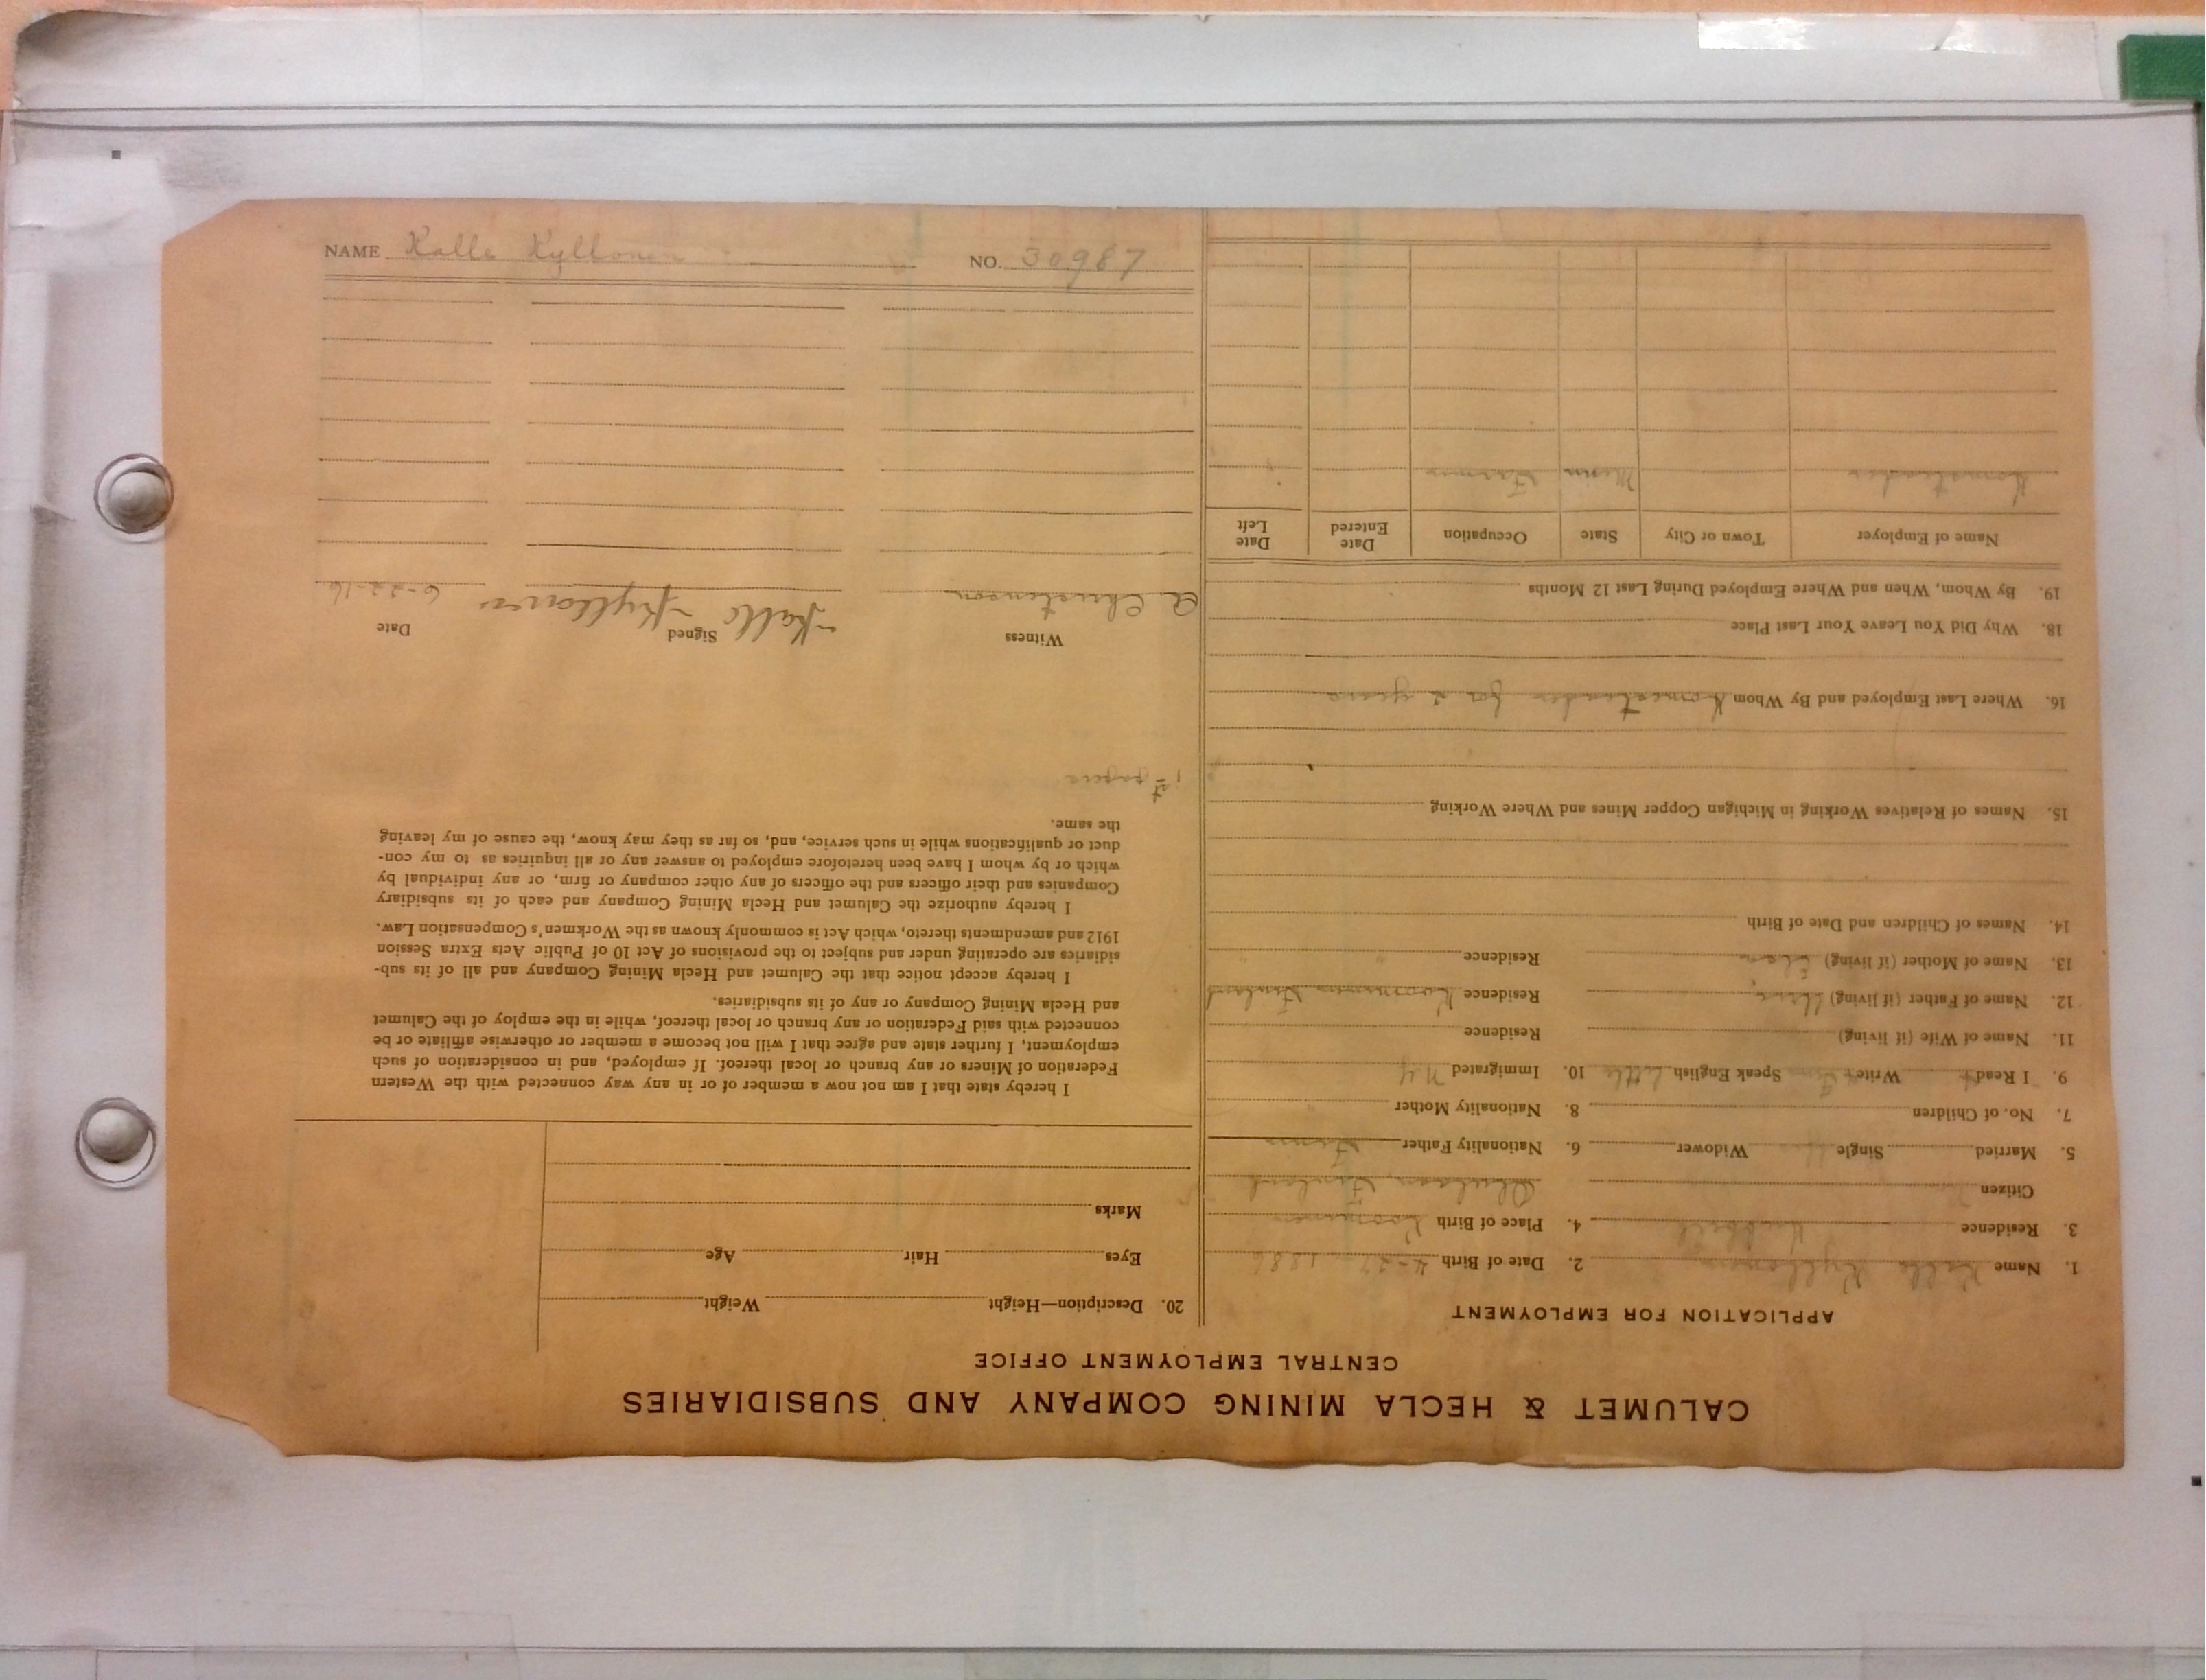 CALUMET & HECLA MINING COMPANY AND SUBSIDIARIES
CENTRAL EMPLOYMENT OFFICE
APPLICATION FOR EMPLOYMENT
1. Name Kalle Kyllonen 2. Date of Birth 4-27 1886
3. Residence Hubbell 4. Place of Birth
Citizen Finland
5. Married Single Widower 6. Nationality Father Finn
7. No. of Children 8. Nationality Mother "
9. I Read Write Speak English little 10. Immigrated
11. Name of Wife (if living) Residence
12. Name of Father (if living) Residence Finland
13. Name of Mother (if living) Residence " "
14. Names of Children and Date of Birth
15. Names of Relatives Working in Michigan Copper Mines and Where Working
16. Where Last Employed and By Whom Homesteader for 2 years
18. Why Did You Leave Your Last Place
19. By Whom, When and Where Employed During Last 12 Months
Name of Employer Town or City State Occupation Date Entered Date Left
Homesteader Minn Farmer
20. Description—Height Weight
Eyes Hair Age
Marks
I hereby state that I am not now a member of or in any way connected with the Western
Federation of Miners or any branch or local thereof. If employed, and in consideration of such
employment, I further state and agree that I will not become a member or otherwise affiliate or be
connected with said Federation or any branch or local thereof, while in the employ of the Calumet
and Hecla Mining Company or any of its subsidiaries.
I hereby accept notice that the Calumet and Hecla Mining Company and all of its sub-
sidiaries are operating under and subject to the provisions of Act 10 of Public Acts Extra Session
1912 and amendments thereto, which Act is commonly known as the Workmen's Compensation Law.
I hereby authorize the Calumet and Hecla Mining Company and each of its subsidiary
Companies and their officers and the officers of any other company or firm, or any individual by
which or by whom I have been heretofore employed to answer any or all inquiries as to my con-
duct or qualifications while in such service, and, so far as they may know, the cause of my leaving
the same.
1st papers
Witness Signed Date
A. Christenson Kalle Kyllonen 6-22-16
NAME Kalle Kyllonen NO. 30987